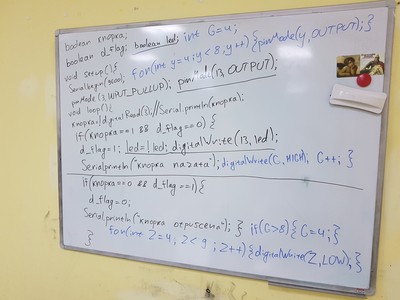 boolean knopka; int C=4;
boolean d_flag; boolean led;
void setup(){ for(int y=4; y<8; y++) {pinMode(y, OUTPUT); }
Serial.begin(9600);
pinMode(3, INPUT_PULLUP); pinMode(13, OUTPUT);
void loop(){
knopka=!digitalRead(3);//Serial.println(knopka);
if(knopka==1 && d_flag==0) {
d_flag=1; led=!led; digitalWrite(13, led);
Serial.println("knopka nazata"); digitalWrite(C, HIGH); C++; }
if(knopka==0 && d_flag==1){
d_flag=0;
Serial.println("knopka otpuscena"); } if(C>8){C=4;}
} for(int Z=4; Z<9; Z++){digitalWrite(Z,LOW);}